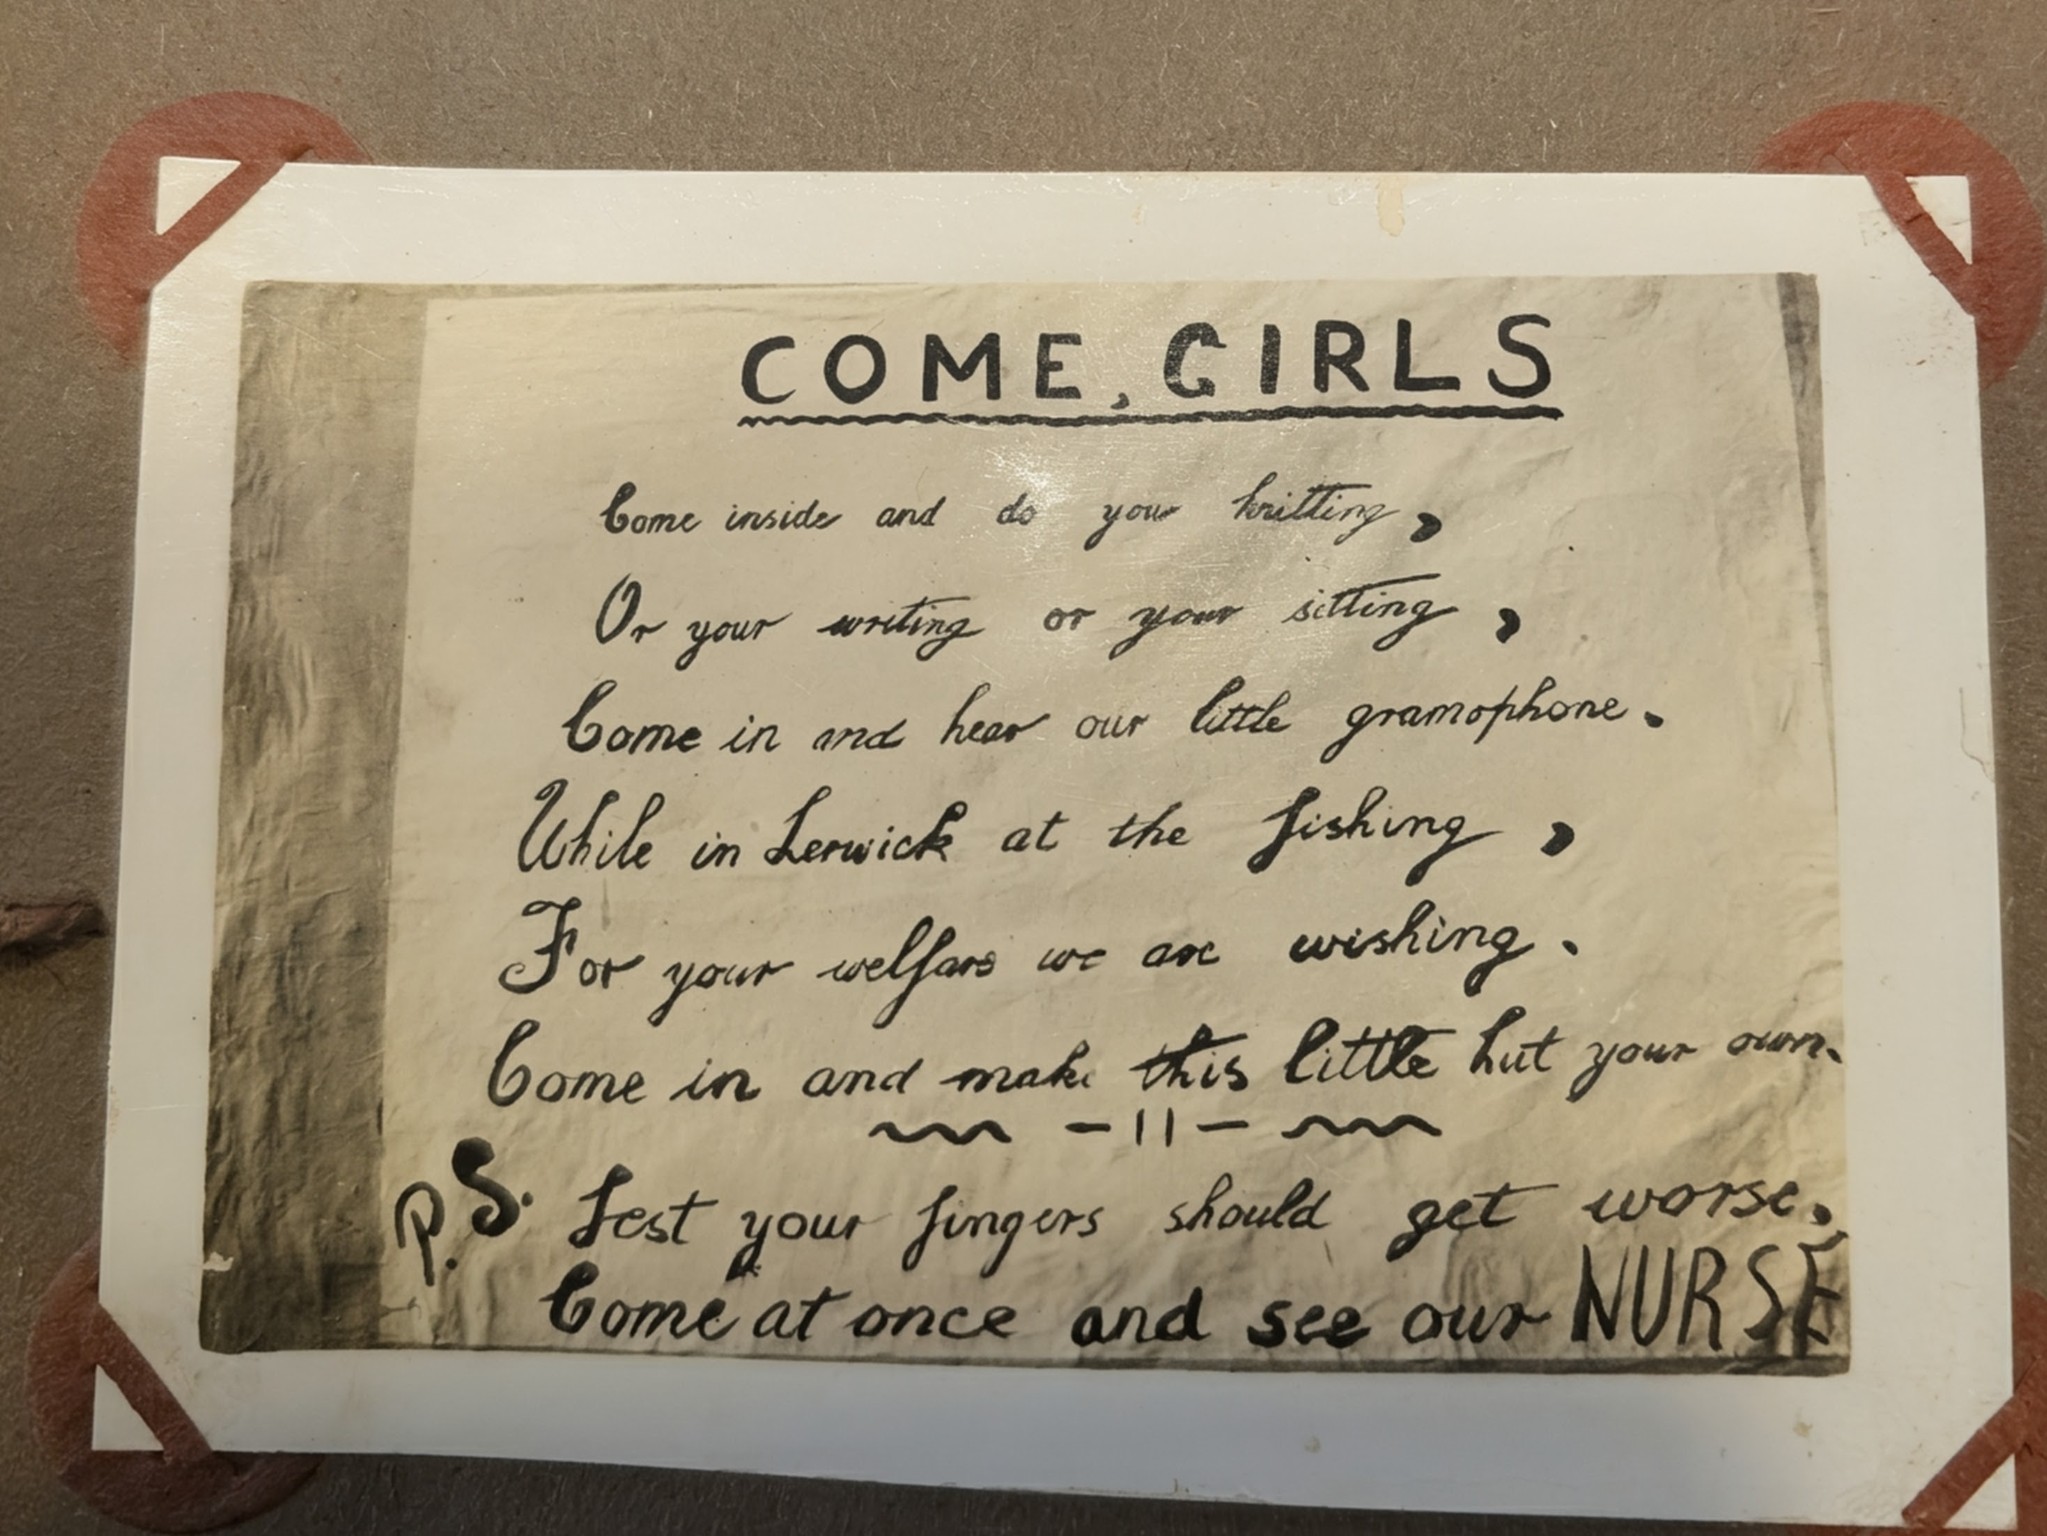 COME, GIRLS
Come inside and do your knitting,
Or your writing or your sitting,
Come in and hear our little gramophone.
While in Lerwick at the fishing,
For your welfare we are wishing.
Come in and make this little hut your own.
P.S. Lest your fingers should get worse,
Come at once and see our NURSE